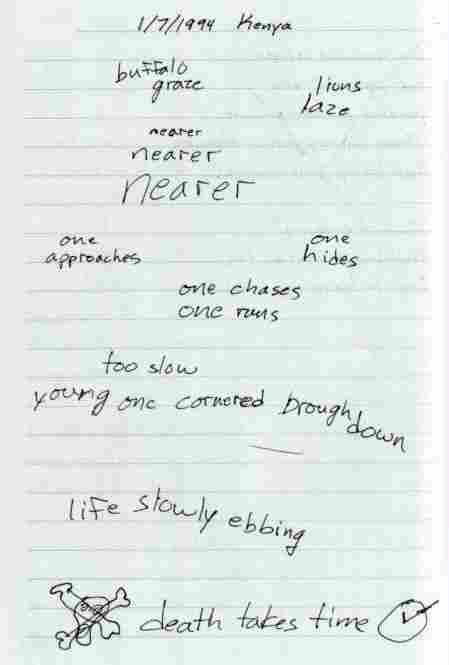 1/7/1994 Kenya
buffalo
graze
lions
laze
nearer
nearer
nearer
one
approaches
one
hides
one chases
one runs
too slow
young one cornered brough
down
life slowly ebbing
death takes time